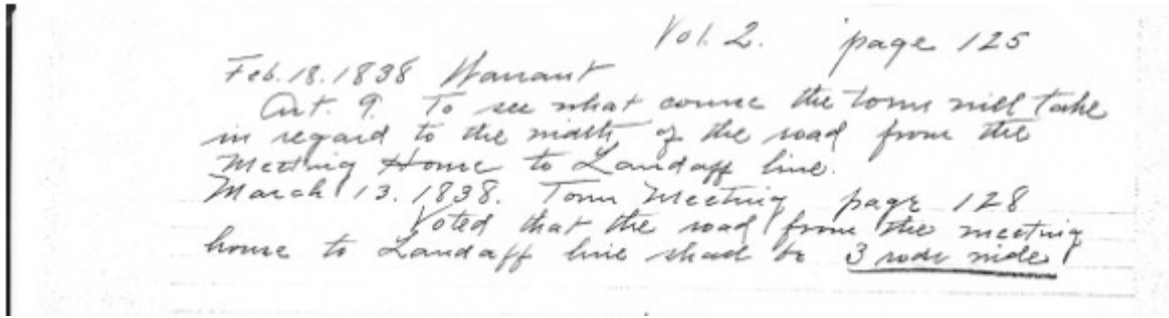 Vol. 2. page 125
Feb. 18. 1838 Warrant
Art. 9. To see what course the town will take
in regard to the width of the road from the
Meeting House to Landaff line.
March 13. 1838. Town Meeting page 128
Voted that the road from the meeting
house to Landaff line shall be 3 rods wide